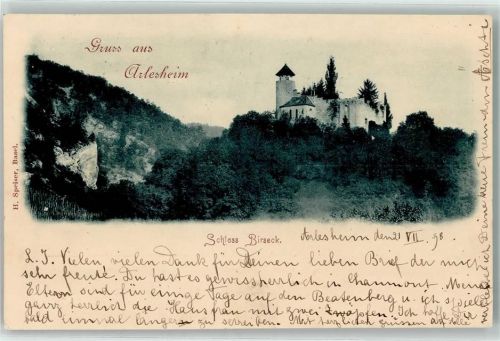 Gruss aus
Arlesheim
H. Spreuer, Basel.
Schloss Birseck.
Arlesheim den 21 VII. 98
L. J. Vielen vielen Dank für Deinen lieben Brief der mich
sehr freute. Du hast es gewiss herrlich in Chaumont. Meine
Eltern sind für einige Tage auf den Beatenberg u. ich spiele
ganz herrlich die Hausfrau mit zwei Zwöpfen. Ich hoffe Dir
bald einmal länger zu schreiben. Mit herzlichen grüssen auf alle
Deine treue Freundin